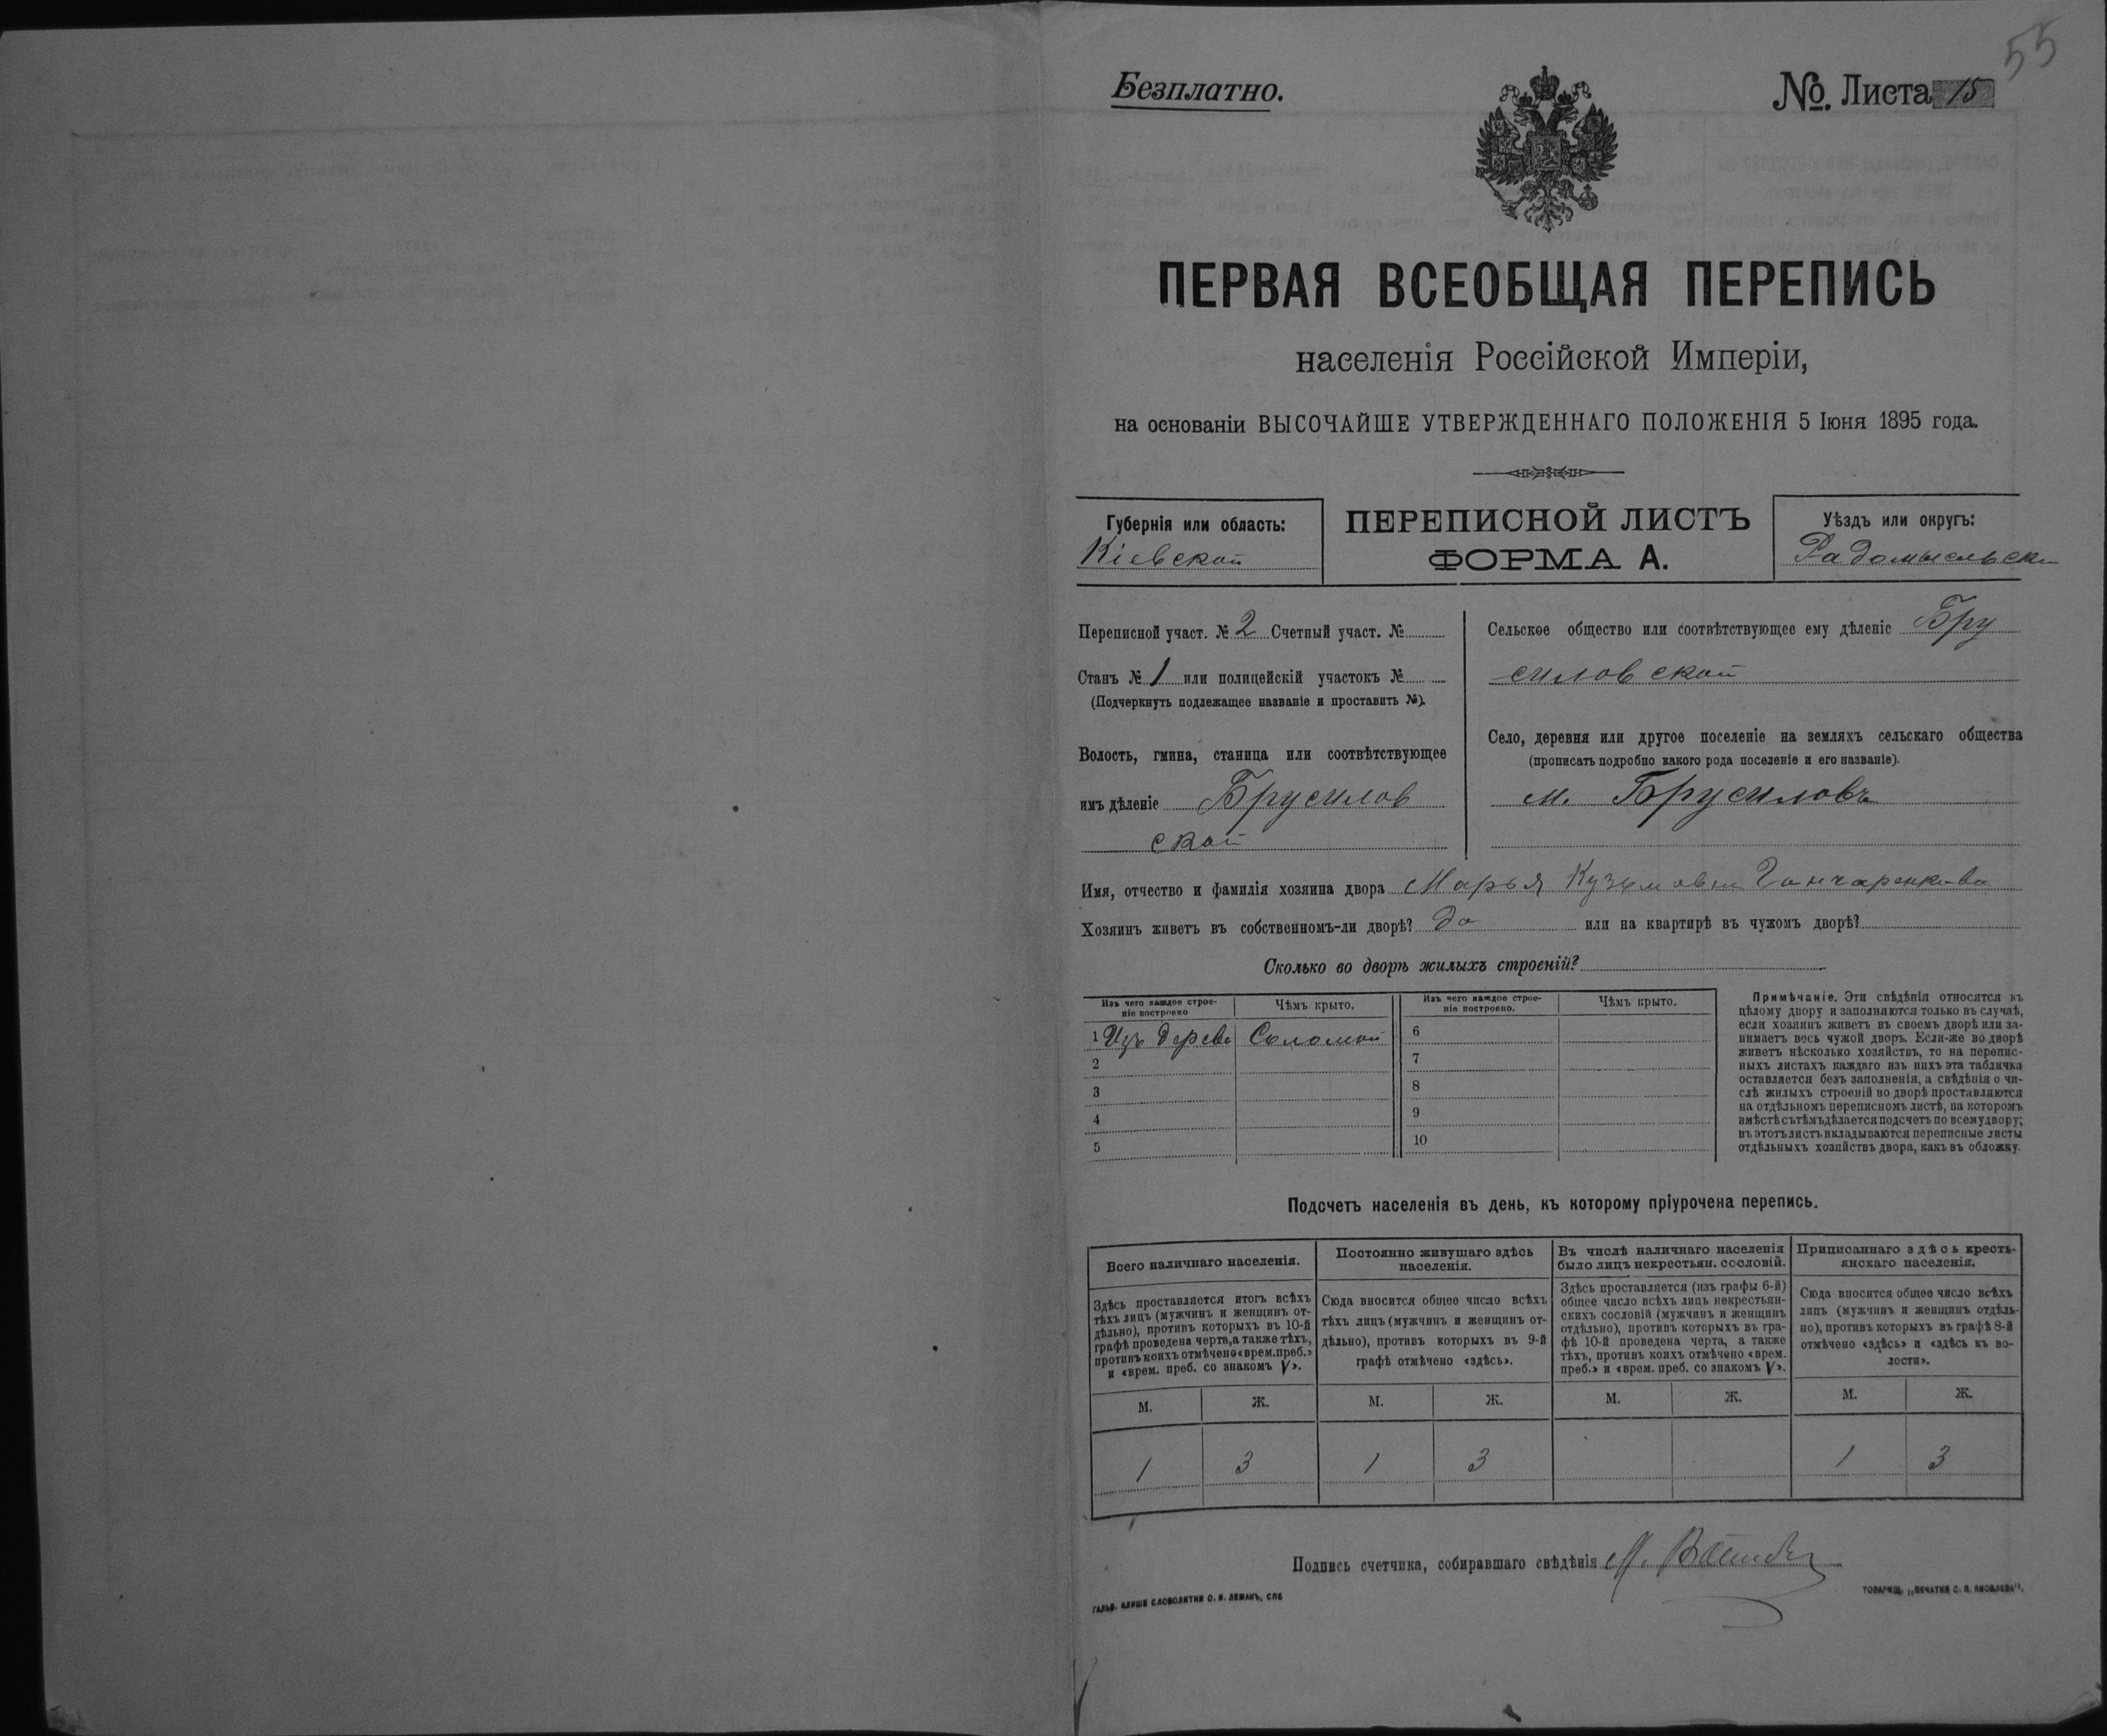 55
Безплатно.
№. Листа 15
ПЕРВАЯ ВСЕОБЩАЯ ПЕРЕПИСЬ
населенія Россійской Имперіи,
на основаніи ВЫСОЧАЙШЕ УТВЕРЖДЕННАГО ПОЛОЖЕНІЯ 5 Іюня 1895 года.
Губернія или область:
Кіевской
ПЕРЕПИСНОЙ ЛИСТЪ
ФОРМА А.
Уѣздъ или округъ:
Радомысльск
Переписной участ. № 2 Счетный участ. №
Станъ № 1 или полицейскій участокъ №
(Подчеркнуть подлежащее названіе и проставить №).
Волость, гмина, станица или соотвѣтствующее
имъ дѣленіе Брусилов
ской
Сельское общество или соотвѣтствующее ему дѣленіе Бру
силовской
Село, деревня или другое поселеніе на земляхъ сельскаго общества
(прописать подробно какого рода поселеніе и его названіе).
м. Брусиловъ
Имя, отчество и фамилія хозяина двора Марья Кузьмовна Ганчаренкова
Хозяинъ живетъ въ собственномъ-ли дворѣ? да или на квартирѣ въ чужомъ дворѣ?
Сколько во дворѣ жилыхъ строеній?
Изъ чего каждое строе-
ніе построено
Чѣмъ крыто.
1 Изъ дерева Соломой
2
3
4
5
Изъ чего каждое строе-
ніе построено.
Чѣмъ крыто.
6
7
8
9
10
Примѣчаніе. Эти свѣдѣнія относятся къ
цѣлому двору и заполняются только въ случаѣ,
если хозяинъ живетъ въ своемъ дворѣ или за-
нимаетъ весь чужой дворъ. Если-же во дворѣ
живетъ нѣсколько хозяйствъ, то на перепис-
ныхъ листахъ каждаго изъ нихъ эта табличка
оставляется безъ заполненія, а свѣдѣнія о чи-
слѣ жилыхъ строеній во дворѣ проставляются
на отдѣльномъ переписномъ листѣ, на которомъ
вмѣстѣ съ тѣмъ дѣлается подсчетъ по всему двору;
въ этотъ листъ вкладываются переписные листы
отдѣльныхъ хозяйствъ двора, какъ въ обложку.
Подсчетъ населенія въ день, къ которому пріурочена перепись.
Всего наличнаго населенія.
Здѣсь проставляется итогъ всѣхъ
тѣхъ лицъ (мужчинъ и женщинъ от-
дѣльно), противъ которыхъ въ 10-й
графѣ проведена черта, а также тѣхъ,
противъ коихъ отмѣчено «врем. преб.»
и «врем. преб. со знакомъ V».
М. Ж.
1 3
Постоянно живущаго здѣсь
населенія.
Сюда вносится общее число всѣхъ
тѣхъ лицъ (мужчинъ и женщинъ от-
дѣльно), противъ которыхъ въ 9-й
графѣ отмѣчено «здѣсь».
М. Ж.
1 3
Въ числѣ наличнаго населенія
было лицъ некрестьян. сословій.
Здѣсь проставляется (изъ графы 6-й)
общее число всѣхъ лицъ некрестьян-
скихъ сословій (мужчинъ и женщинъ
отдѣльно), противъ которыхъ въ гра-
фѣ 10-й проведена черта, а также
тѣхъ, противъ коихъ отмѣчено «врем.
преб.» и «врем. преб. со знакомъ V».
М. Ж.
Приписаннаго здѣсь кресть-
янскаго населенія.
Сюда вносится общее число всѣхъ
лицъ (мужчинъ и женщинъ отдѣль-
но), противъ которыхъ въ графѣ 8-й
отмѣчено «здѣсь» и «здѣсь къ во-
лости».
М. Ж.
1 3
Подпись счетчика, собиравшаго свѣдѣнія
ГАЛЬВ. КЛИШЕ СЛОВОЛИТНИ О. И. ЛЕМАНЪ, СПБ
ТОВАРИЩ. „ПЕЧАТНЯ С. П. ЯКОВЛЕВА".